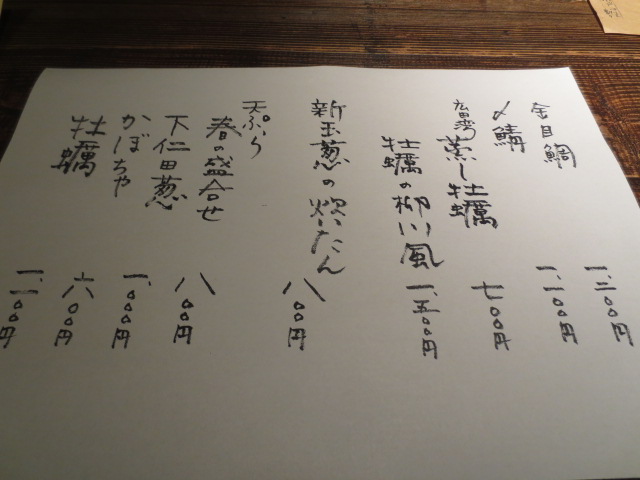 金目鯛 一、二〇〇円
〆鯖 一、一〇〇円
広田湾 蒸し牡蠣 七〇〇円
牡蠣の柳川風 一、五〇〇円
新玉葱の炊いたん 八〇〇円
天ぷら
春の盛合せ 八〇〇円
下仁田葱 一、〇〇〇円
かぼちゃ 六〇〇円
牡蠣 一、一〇〇円